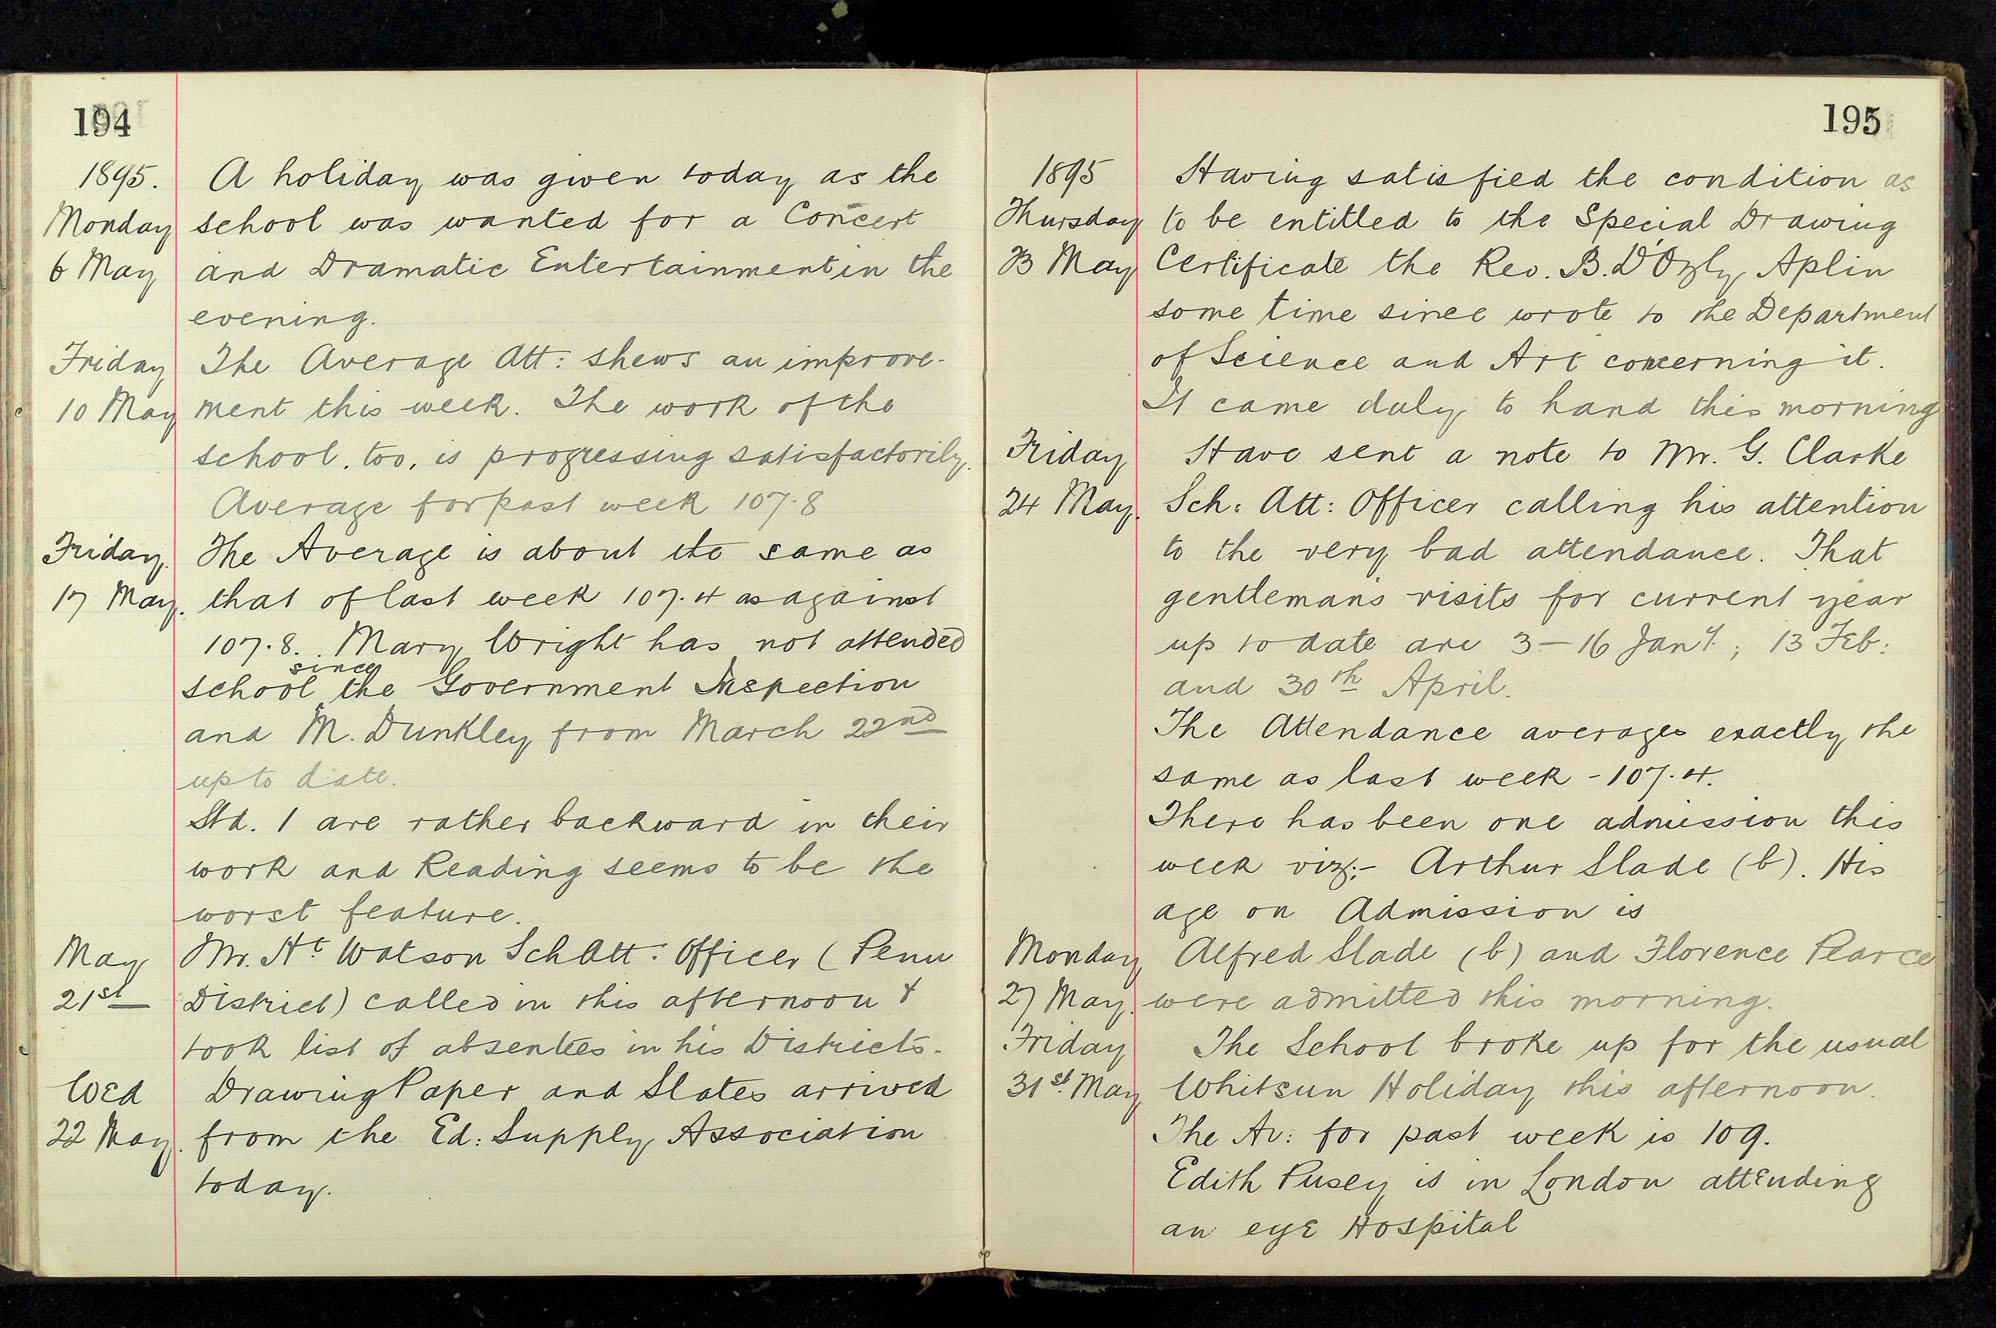 194
1895. A holiday was given today as the
Monday school was wanted for a Concert
6 May and Dramatic Entertainment in the
evening.
Friday The Average Att: shews an improve-
10 May ment this week. The work of the
school, too, is progressing satisfactorily.
Average for past week 107.8
Friday The Average is about the same as
17 May. that of last week 107.4 as against
107.8. Mary Wright has not attended
since
school the Government Inspection
and M. Dunkley from March 22nd
up to date.
Std. 1 are rather backward in their
work and Reading seems to be the
worst feature.
May Mr. Ht Watson Sch Att: Officer (Penn
21st District) called in this afternoon &
took list of absentees in his Districts.
Wed Drawing Paper and Slates arrived
22 May. from the Ed: Supply Association
today.
195
1895 Having satisfied the condition as
Thursday to be entitled to the Special Drawing
23 May Certificate the Rev. B. D'Ozly Aplin
some time since wrote to the Department
of Science and Art concerning it.
It came duly to hand this morning
Friday Have sent a note to Mr. G. Clarke
24 May. Sch: Att: Officer calling his attention
to the very bad attendance. That
gentlemans visits for current year
up to date are 3 — 16 Jany.; 13 Feb:
and 30th April.
The Attendance averages exactly the
same as last week - 107.4.
There has been one admission this
week viz:- Arthur Slade (b). His
age on Admission is
Monday Alfred Slade (b) and Florence Pearce
27 May. were admitted this morning.
Friday The School broke up for the usual
31st. May Whitsun Holiday this afternoon.
The Av: for past week is 109.
Edith Pusey is in London attending
an eye Hospital